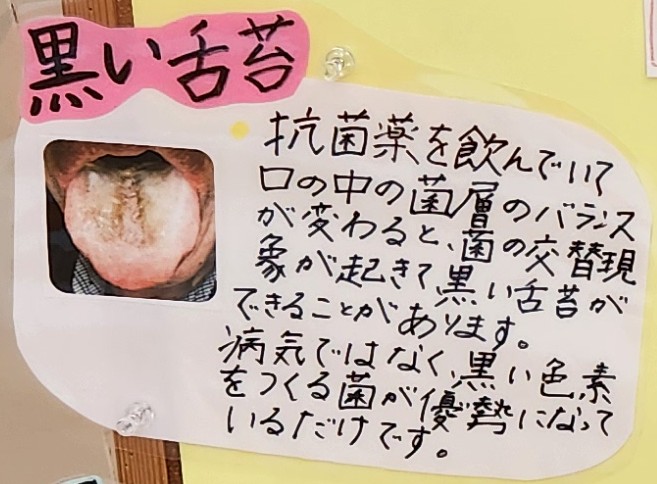 黒い舌苔
抗菌薬を飲んでいて
口の中の菌層のバランス
が変わると、菌の交替現
象が起きて黒い舌苔が
できることがあります。
病気ではなく、黒い色素
をつくる菌が優勢になって
いるだけです。